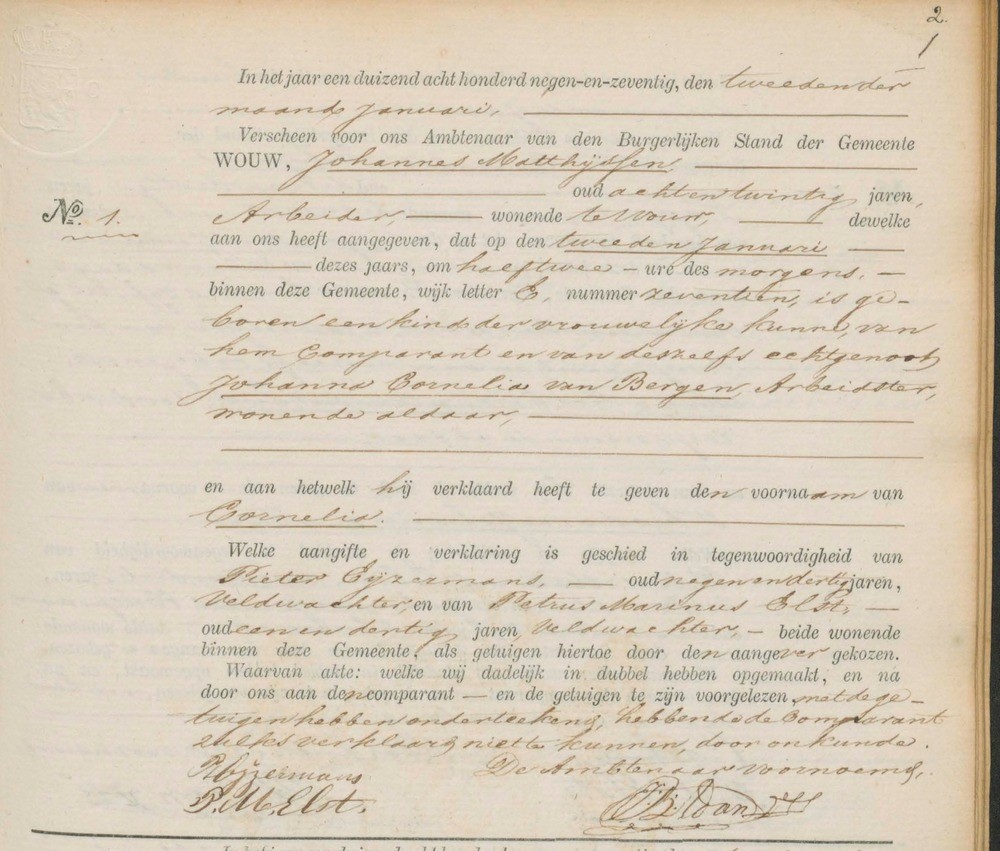 2.
1
In het jaar een duizend acht honderd negen-en-zeventig, den tweeden der
maand Januari,
Verscheen voor ons Ambtenaar van den Burgerlijken Stand der Gemeente
WOUW, Johannes Matthijssen,
oud achtentwintig jaren,
No. 1. Arbeider, wonende te Wouw, dewelke
aan ons heeft aangegeven, dat op den tweeden Januari
dezes jaars, om half twee - ure des morgens,
binnen deze Gemeente, wijk letter E, nummer zeventien, is ge-
boren een kind der vrouwelijke kunne, van
hem Comparant en van deszelfs echtgenoot
Johanna Cornelia van Bergen, Arbeidster,
wonende aldaar,
en aan hetwelk hij verklaard heeft te geven den voornaam van
Cornelia.
Welke aangifte en verklaring is geschied in tegenwoordigheid van
Pieter Eijzermans, oud negenendertig jaren,
Veldwachter, en van Petrus Marinus Elst,
oud eenendertig jaren, Veldwachter, - beide wonende
binnen deze Gemeente, als getuigen hiertoe door den aangever gekozen.
Waarvan akte: welke wij dadelijk in dubbel hebben opgemaakt, en na
door ons aan den comparant — en de getuigen te zijn voorgelezen, met de ge-
tuigen hebben onderteekend, hebbende de Comparant
zulks verklaard niet te kunnen, door onkunde.
P. Eijzermans De Ambtenaar voornoemd,
P. M. Elst.